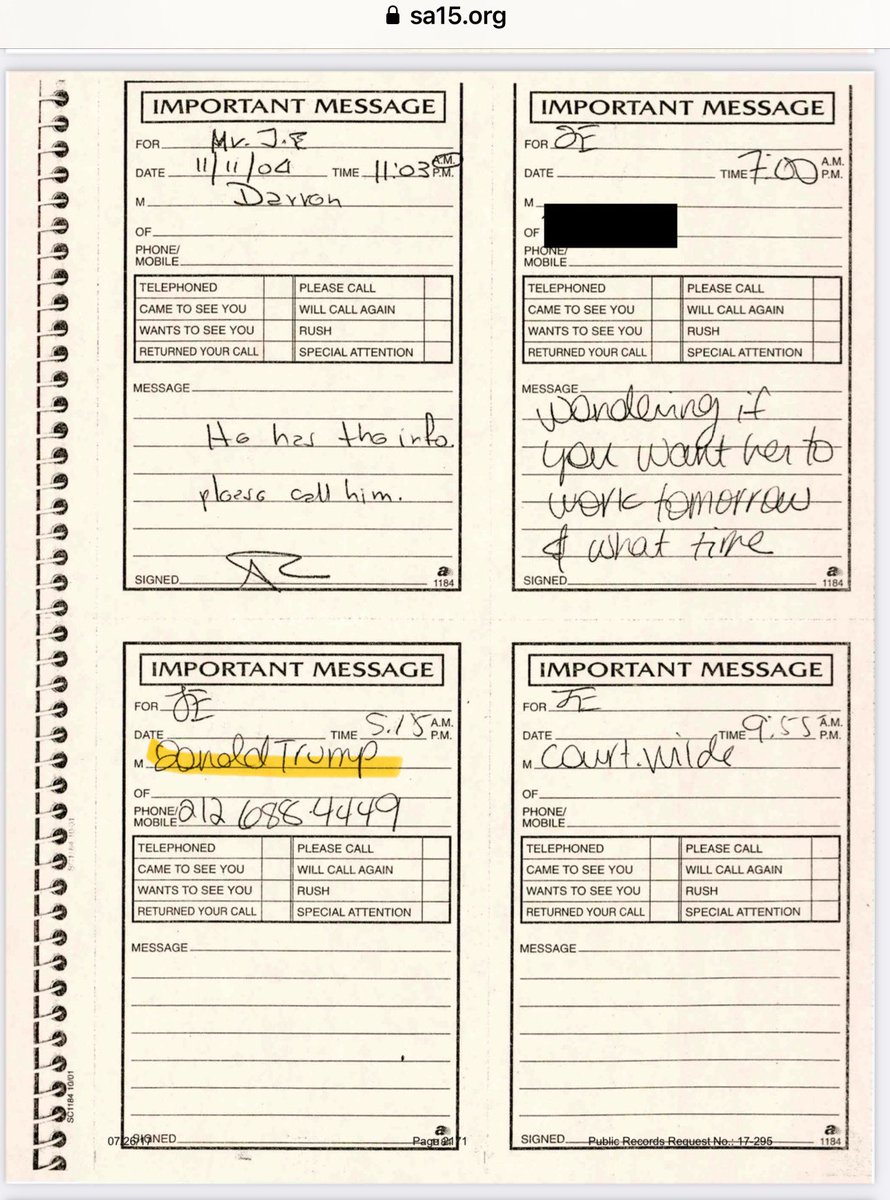 sa15.org
IMPORTANT MESSAGE
FOR Mr. J.E
DATE 11/11/04 TIME 11:03 A.M. P.M.
M Darren
OF
PHONE/
MOBILE
TELEPHONED PLEASE CALL
CAME TO SEE YOU WILL CALL AGAIN
WANTS TO SEE YOU RUSH
RETURNED YOUR CALL SPECIAL ATTENTION
MESSAGE
He has the info.
please call him.
SIGNED
a
1184
IMPORTANT MESSAGE
FOR JE
DATE TIME 7:00 A.M. P.M.
M
OF
PHONE/
MOBILE
TELEPHONED PLEASE CALL
CAME TO SEE YOU WILL CALL AGAIN
WANTS TO SEE YOU RUSH
RETURNED YOUR CALL SPECIAL ATTENTION
MESSAGE
wondering if
you want her to
work tomorrow
& what time
SIGNED
a
1184
IMPORTANT MESSAGE
FOR JE
DATE TIME 5:15 A.M. P.M.
M Donald Trump
OF
PHONE/
MOBILE 212 688-4449
TELEPHONED PLEASE CALL
CAME TO SEE YOU WILL CALL AGAIN
WANTS TO SEE YOU RUSH
RETURNED YOUR CALL SPECIAL ATTENTION
MESSAGE
SIGNED
a
IMPORTANT MESSAGE
FOR JE
DATE TIME 9:55 A.M. P.M.
M Court. Wilde
OF
PHONE/
MOBILE
TELEPHONED PLEASE CALL
CAME TO SEE YOU WILL CALL AGAIN
WANTS TO SEE YOU RUSH
RETURNED YOUR CALL SPECIAL ATTENTION
MESSAGE
SIGNED
a
1184
SC1184 10/01
07/26/17 Page Public Records Request No.: 17-295